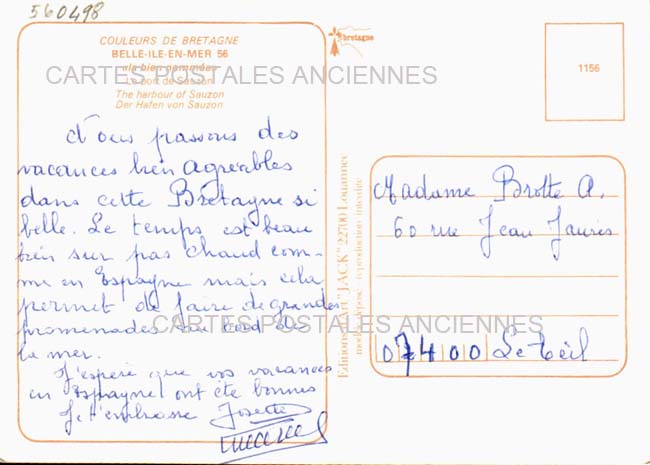 560498
COULEURS DE BRETAGNE
BELLE-ILE-EN-MER 56
«la bien nommée»
Le port de Sauzon
The harbour of Sauzon
Der Hafen von Sauzon
CARTES POSTALES ANCIENNES
Nous passons des
vacances bien agréables
dans cette Bretagne si
belle. Le temps est beau
bien sur pas chaud com-
me en Espagne mais cela
permet de faire de grandes
promenades au bord de
la mer.
J'espère que vos vacances
en Espagne ont été bonnes
Je t'embrasse Josette
CARTES POSTALES ANCIENNES
Editions d'Art "JACK" 22700 Louannec
modèle déposé - reproduction interdite
bretagne
1156
Madame Brotte A.
60 rue Jean Jaurès
07400 Le Teil